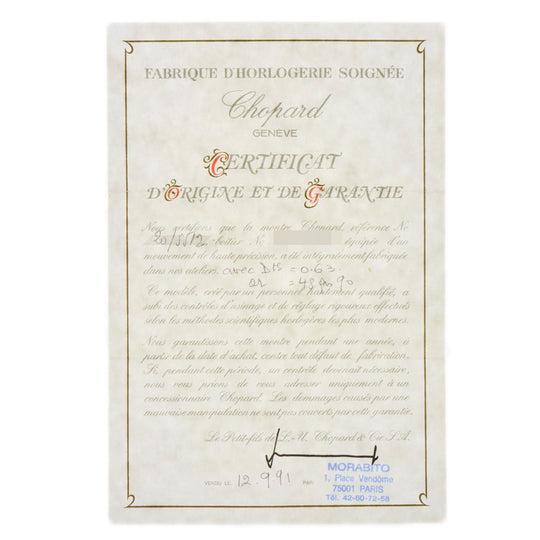 FABRIQUE D'HORLOGERIE SOIGNÉE
Chopard
GENÈVE
CERTIFICAT
D'ORIGINE ET DE GARANTIE
Nous certifions que la montre Chopard, référence No
20/5512 boîtier No équipée d'un
mouvement de haute précision, a été intégralement fabriquée
dans nos ateliers. avec Dts = 0.63
Ce modèle, créé par un personnel hautement qualifié, a
subi des contrôles d'usinage et de réglage rigoureux effectués
selon les méthodes scientifiques horlogères les plus modernes.
Nous garantissons cette montre pendant une année, à
partir de la date d'achat, contre tout défaut de fabrication.
Si, pendant cette période, un contrôle devenait nécessaire,
nous vous prions de vous adresser uniquement à un
concessionnaire Chopard. Les dommages causés par une
mauvaise manipulation ne sont pas couverts par cette garantie.
Le Petit-fils de L.-U. Chopard & Cie S.A.
VENDU LE 12.9.91 PAR
MORABITO
1, Place Vendôme
75001 PARIS
Tél. 42-60-72-58